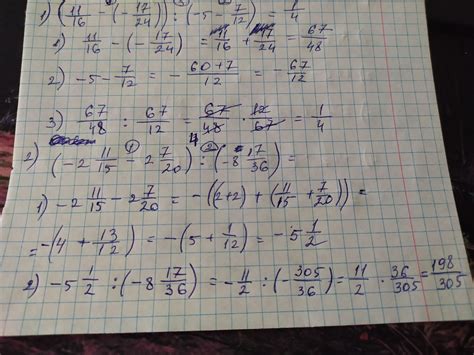 1) (11/16 - (-17/24)) : (-5 - 7/12) = 1/4
1) 11/16 - (-17/24) = 11/16 + 17/24 = 67/48
2) -5 - 7/12 = - (60+7)/12 = - 67/12
3) 67/48 : 67/12 = 67/48 · 12/67 = 1/4
2) (-2 11/15 - 2 7/20) : (-8 17/36) =
1) -2 11/15 - 2 7/20 = -((2+2) + (11/15 + 7/20)) =
= -(4 + 13/12) = -(5 + 1/12) = -5 1/2
2) -5 1/2 : (-8 17/36) = - 11/2 : (- 305/36) = 11/2 · 36/305 = 198/305